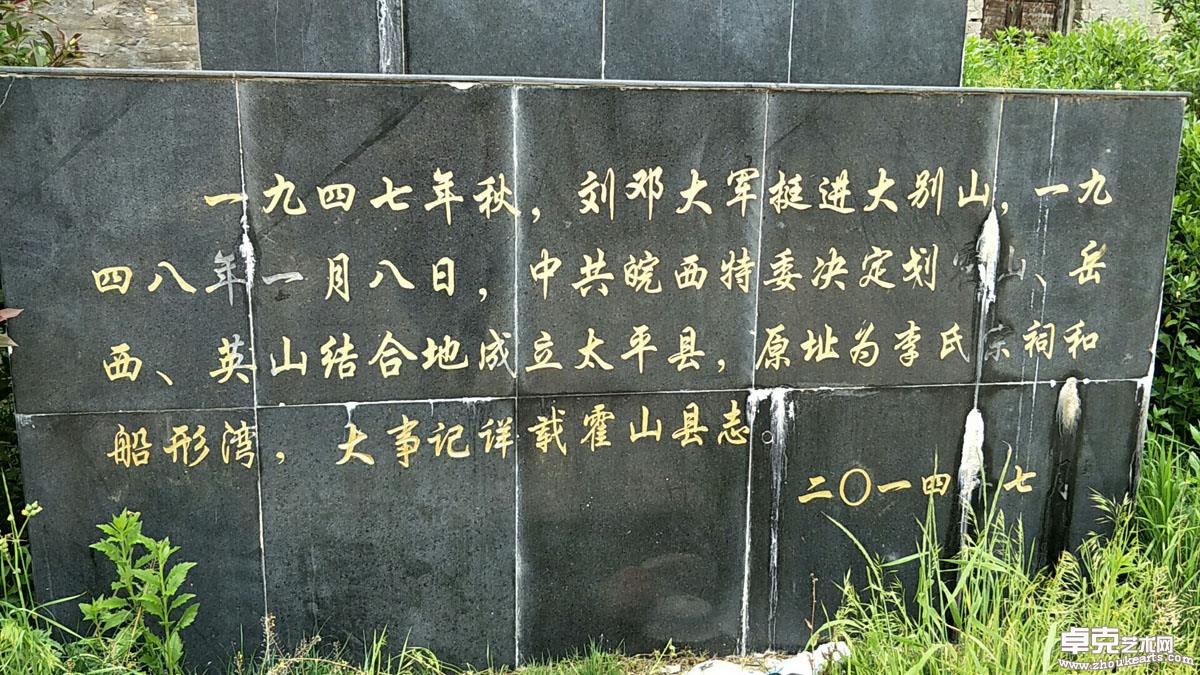 一九四七年秋，刘邓大军挺进大别山，一九
四八年一月八日，中共皖西特委决定划山、岳
西、英山结合地成立太平县，原址为李氏宗祠和
船形湾，大事记详载霍山县志。
二〇一四七
卓克艺术网
www.zhoukearts.com